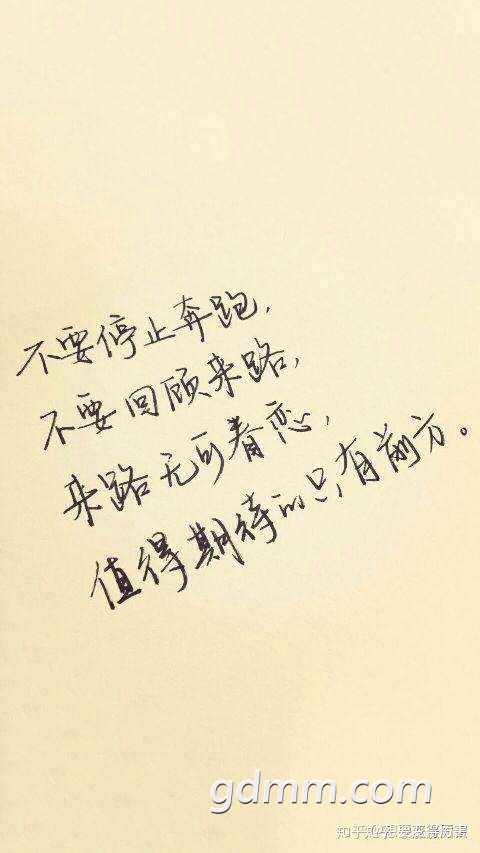 不要停止奔跑，
不要回顾来路，
来路无可眷恋，
值得期待的只有前方。
gdmm.com